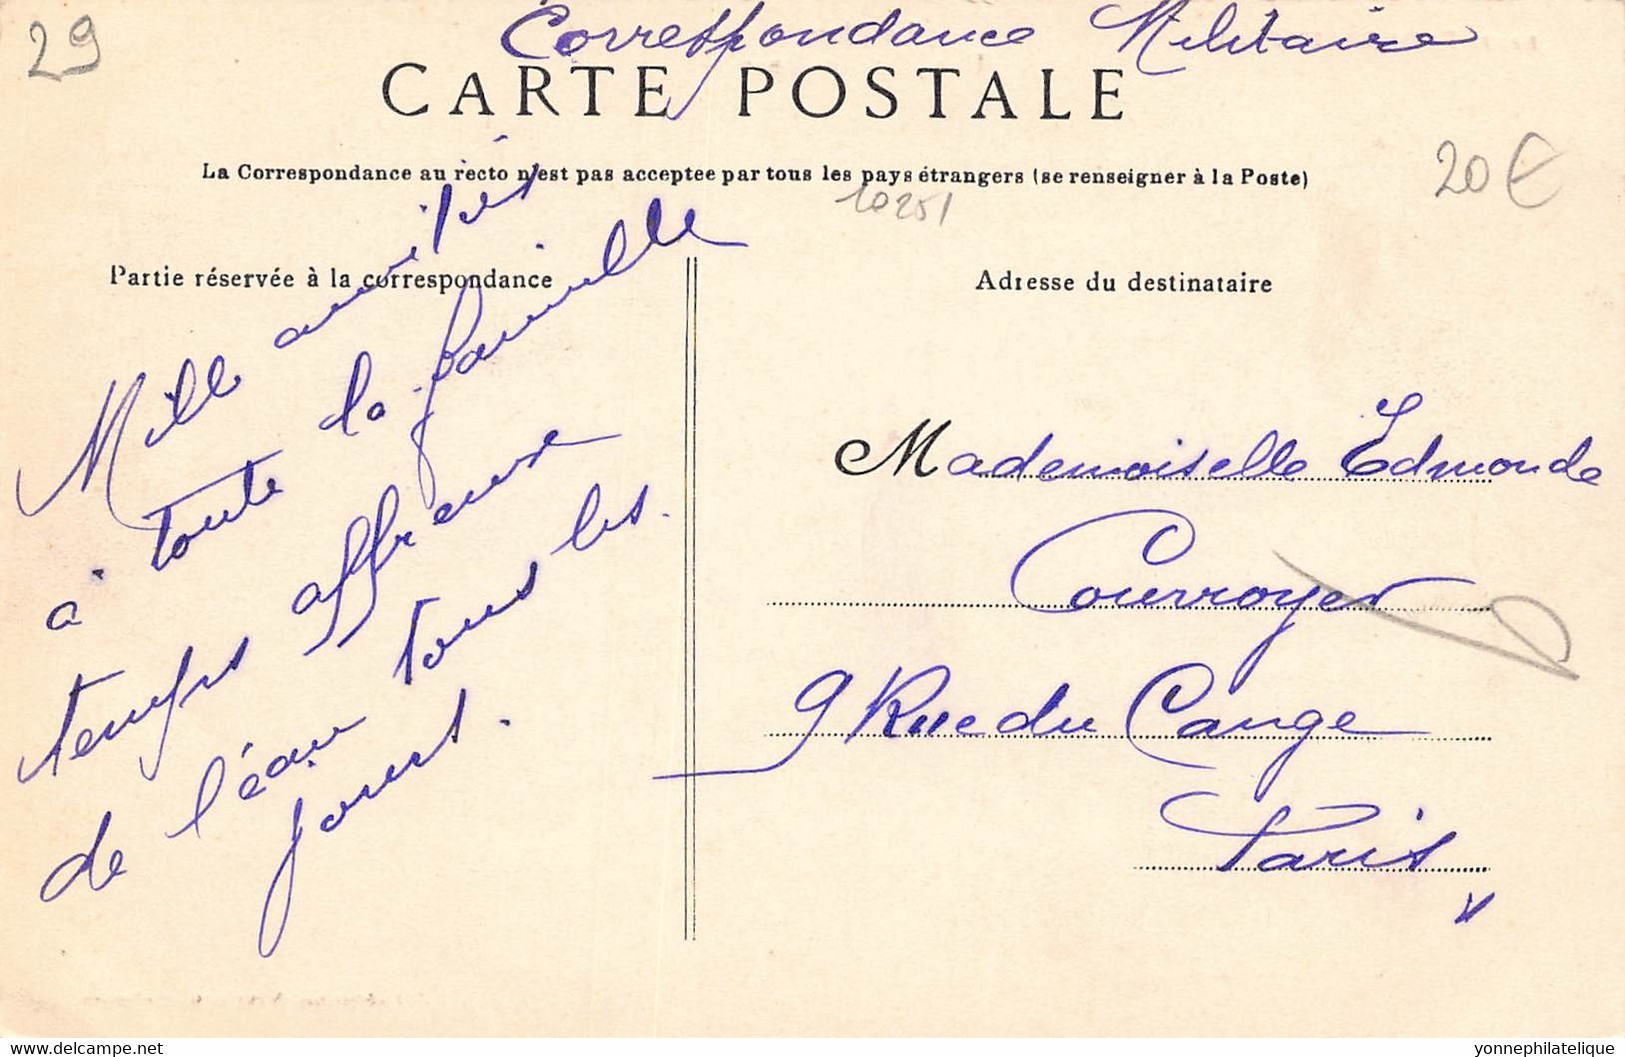 29
Correspondance Militaire
CARTE POSTALE
La Correspondance au recto n'est pas acceptée par tous les pays étrangers (se renseigner à la Poste)
20 €
10251
Partie réservée à la correspondance
Adresse du destinataire
Mille amitiés
à toute la famille
temps affreux
de l'eau tous les
jours.
Mademoiselle Edmonde
Courroyer
9 Rue du Cange
Paris
yonnephilatelique